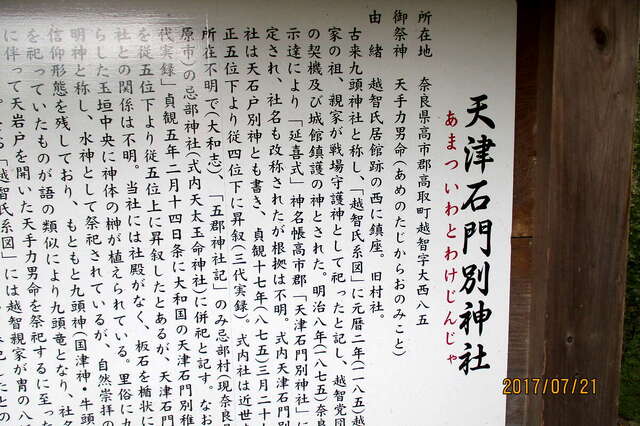 天津石門別神社
あまついわとわけじんじゃ
所在地　奈良県高市郡高取町越智字大西八五
御祭神　天手力男命(あめのたじからおのみこと)
由　緒　越智氏居館跡の西に鎮座。旧村社。
古来九頭神社と称し、「越智氏系図」に元暦二年(一一八五)越
家の祖、親家が戦場守護神として祀ったと記し、越智党団
の契機及び城館鎮護の神とされた。明治八年(一八七五)奈良
示達により「延喜式」神名帳高市郡「天津石門別神社」に
定され、社名も改称されたが根拠は不明。式内天津石門別
社は天石戸別神とも書き、貞観十七年(八七五)三月二十
正五位下より従四位下に昇叙(三代実録)。式内社は近世
所在不明で(大和志)、「五郡神社記」のみ忌部村(現奈良
原市)の忌部神社(式内天太玉命神社)に併祀と記す。なお
代実録」貞観五年二月十四日条に大和国の天津石門別稚
を従五位下より従五位上に昇叙したとあるが、天津石門
社との関係は不明。当社には社殿がなく、板石を楯状に
らした玉垣中央に神体の榊が植えられている。里俗に九
明神と称し、水神として祭祀されているが、自然崇拝の
信仰形態を残しており、もともと九頭神(国津神・牛頭
を祀っていたものが語の類似により九頭竜となり、社名
に伴って天岩戸を開いた天手力男命を祭祀するに至った
「越智氏系図」には越智親家が男の八
2017/07/21